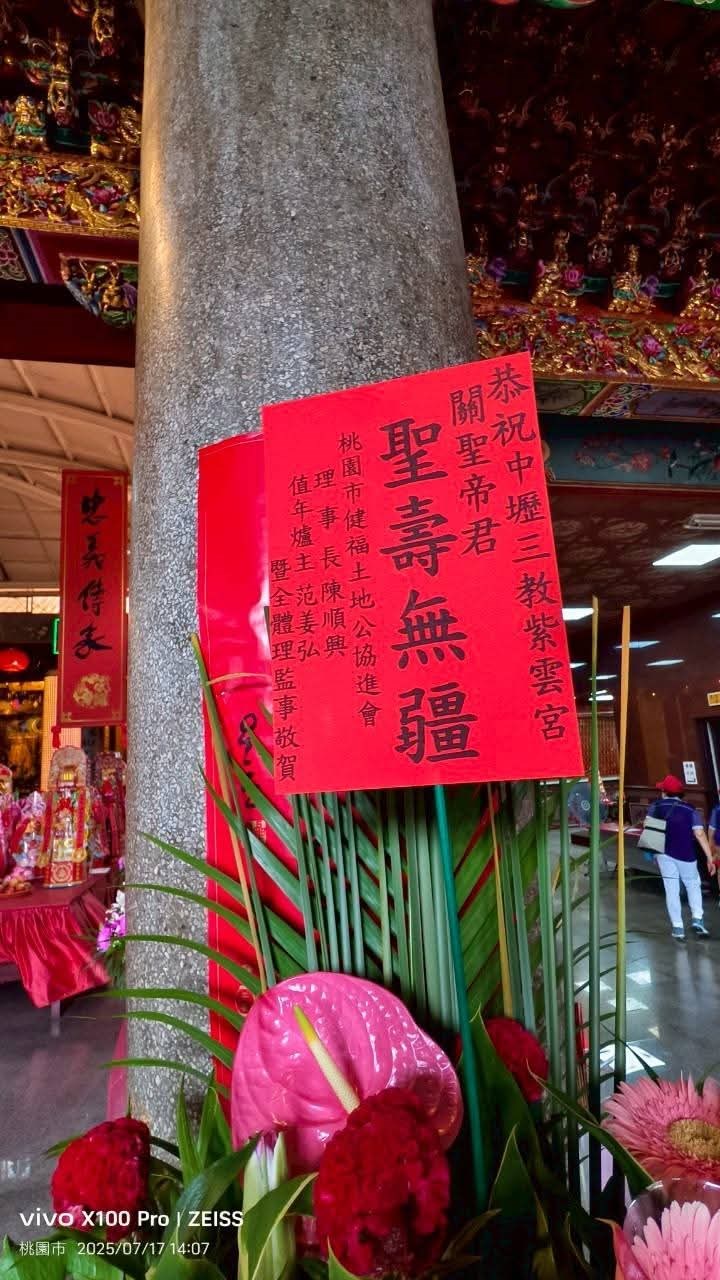 恭祝中壢三教紫雲宮
關聖帝君
聖壽無疆
桃園市健福土地公協進會
理事長陳順興
值年爐主范姜弘
暨全體理監事敬賀
忠義傳家
vivo X100 Pro | ZEISS
桃園市 2025/07/17 14:07